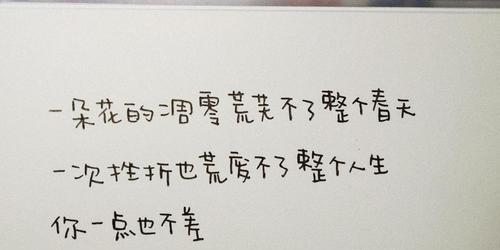 一朵花的凋零荒芜不了整个春天
一次挫折也荒废不了整个人生
你一点也不差